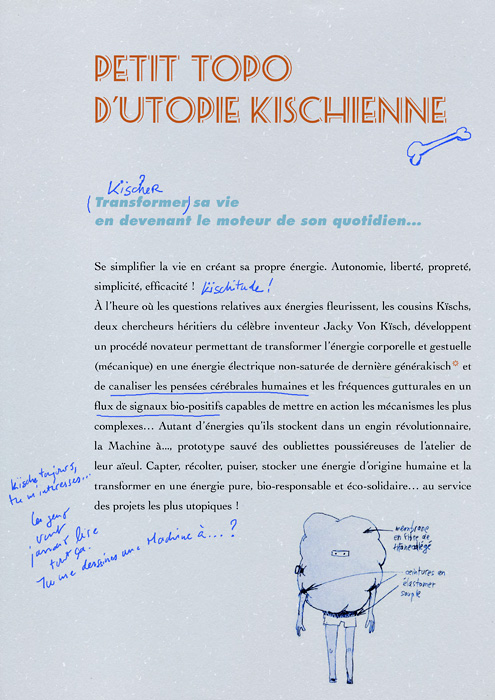 PETIT TOPO
D'UTOPIE KISCHIENNE
Kischer ?
(Transformer) sa vie
en devenant le moteur de son quotidien...
Se simplifier la vie en créant sa propre énergie. Autonomie, liberté, propreté,
simplicité, efficacité ! Kischitude !
À l'heure où les questions relatives aux énergies fleurissent, les cousins Kïschs,
deux chercheurs héritiers du célèbre inventeur Jacky Von Kïsch, développent
un procédé novateur permettant de transformer l'énergie corporelle et gestuelle
(mécanique) en une énergie électrique non-saturée de dernière générakisch* et
de canaliser les pensées cérébrales humaines et les fréquences gutturales en un
flux de signaux bio-positifs capables de mettre en action les mécanismes les plus
complexes... Autant d'énergies qu'ils stockent dans un engin révolutionnaire,
la Machine à..., prototype sauvé des oubliettes poussiéreuses de l'atelier de
leur aïeul. Capter, récolter, puiser, stocker une énergie d'origine humaine et la
transformer en une énergie pure, bio-responsable et éco-solidaire... au service
des projets les plus utopiques !
Kische toujours,
tu m'intéresses...
Les gens
vont
jamais lire
tout ça.
Tu me dessines une Machine à....?
membrane
en fibre de
ceintures en
élastomer
souple